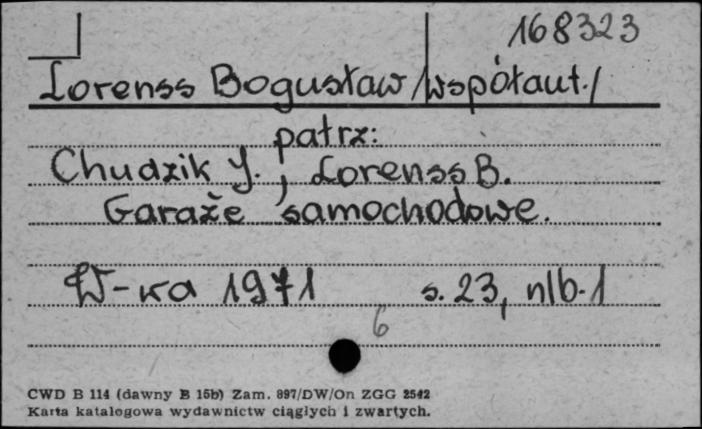 168323
Lorenss Bogusław /współaut./
patrz:
Chudzik J., Lorenss B.
Garaże samochodowe.
W-wa 1971 s. 23, nlb. 1
6
CWD B 114 (dawny B 15b) Zam. 897/DW/On ZGG 2542
Karta katalogowa wydawnictw ciągłych i zwartych.